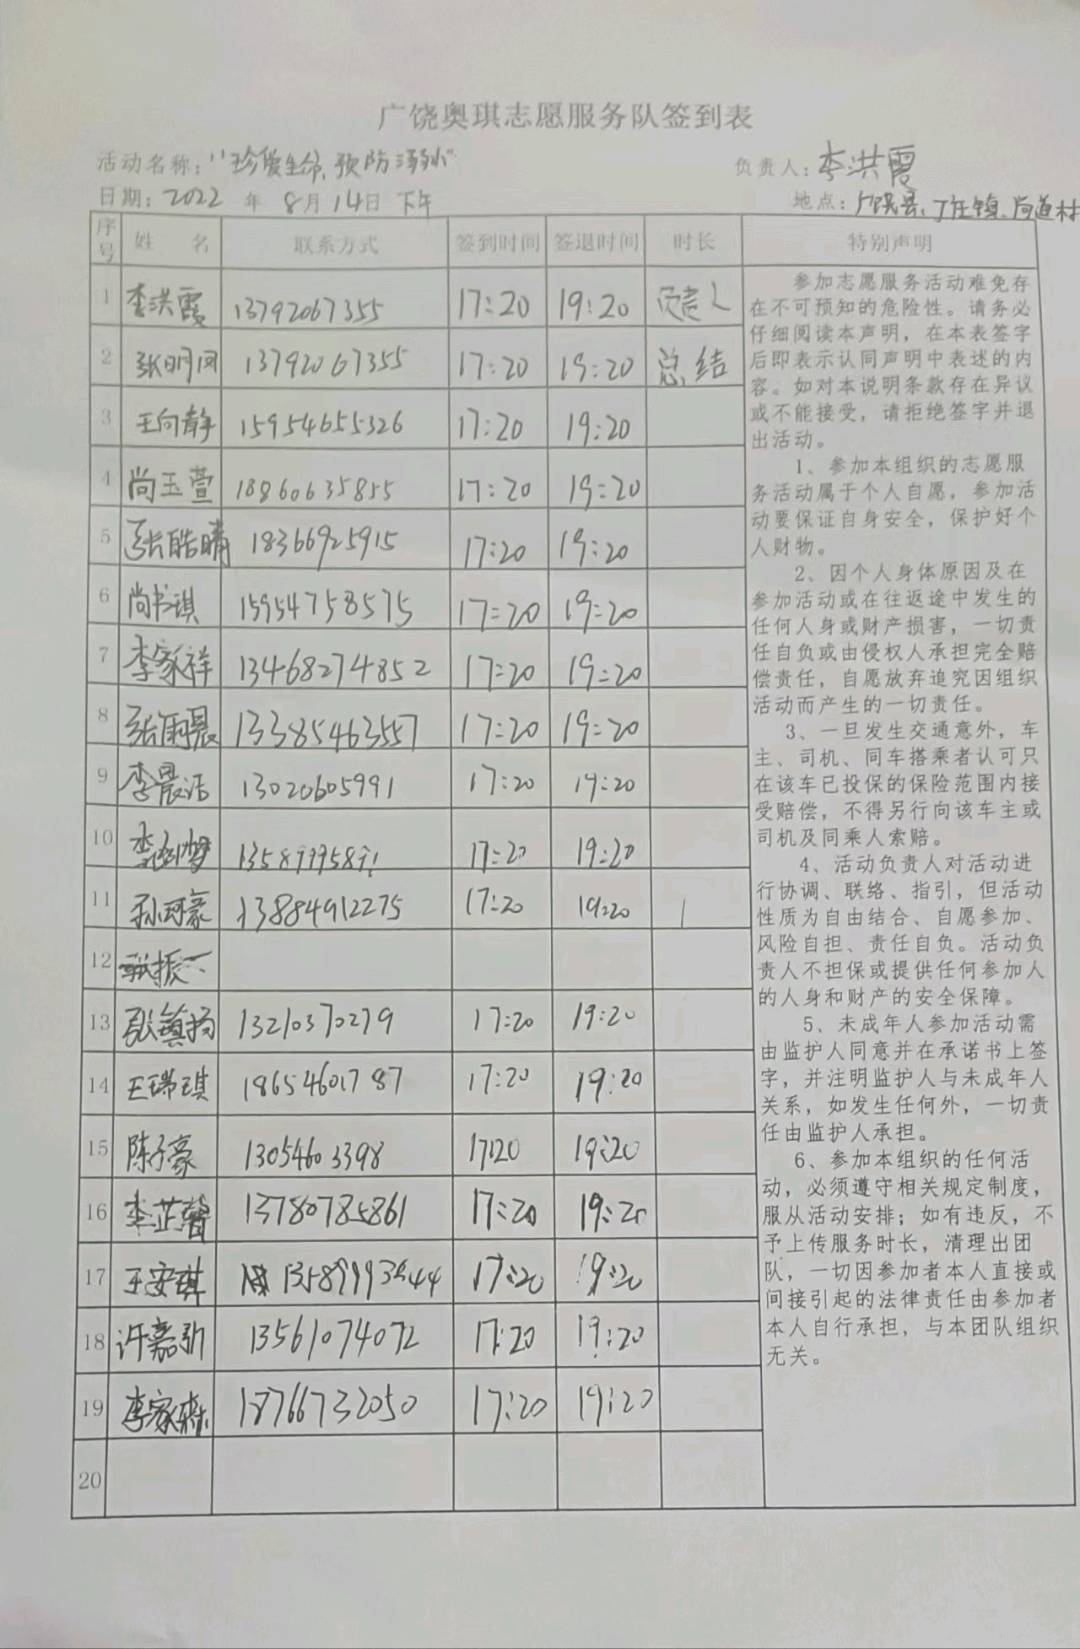 广饶奥琪志愿服务队签到表
活动名称："珍爱生命，预防溺水" 负责人：李洪霞
日期：2022 年 8月14日 下午 地点：广饶县、丁庄镇、尚道村
序号 姓 名 联系方式 签到时间 签退时间 时长 特别声明
1 李洪霞 13792067355 17:20 19:20 负责人
2 张明同 13792067355 17:20 19:20 总结
3 王向静 15954655326 17:20 19:20
4 尚玉萱 18860635855 17:20 19:20
5 张皓晴 18366925915 17:20 19:20
6 尚书琪 15954758575 17:20 19:20
7 李家祥 13468274852 17:20 19:20
8 张雨晨 13385463557 17:20 19:20
9 李晨洁 13020605991 17:20 19:20
10 17:20 19:20
11 13884912275 17:20 19:20
12 张振
13 张镇扬 13210370279 17:20 19:20
14 王瑞琪 18654601787 17:20 19:20
15 陈子豪 13054603398 17:20 19:20
16 李芷馨 13780785861 17:20 19:20
17 王安琪 17:20 19:20
18 许嘉 13561074072 17:20 19:20
19 李家森 18766732050 17:20 19:20
20
参加志愿服务活动难免存
在不可预知的危险性。请务必
仔细阅读本声明，在本表签字
后即表示认同声明中表述的内
容。如对本说明条款存在异议
或不能接受，请拒绝签字并退
出活动。
1、参加本组织的志愿服
务活动属于个人自愿，参加活
动要保证自身安全，保护好个
人财物。
2、因个人身体原因及在
参加活动或在往返途中发生的
任何人身或财产损害，一切责
任自负或由侵权人承担完全赔
偿责任，自愿放弃追究因组织
活动而产生的一切责任。
3、一旦发生交通意外，车
主、司机、同车搭乘者认可只
在该车已投保的保险范围内接
受赔偿，不得另行向该车主或
司机及同乘人索赔。
4、活动负责人对活动进
行协调、联络、指引，但活动
性质为自由结合、自愿参加、
风险自担、责任自负。活动负
责人不担保或提供任何参加人
的人身和财产的安全保障。
5、未成年人参加活动需
由监护人同意并在承诺书上签
字，并注明监护人与未成年人
关系，如发生任何外，一切责
任由监护人承担。
6、参加本组织的任何活
动，必须遵守相关规定制度，
服从活动安排；如有违反，不
予上传服务时长，清理出团
队，一切因参加者本人直接或
间接引起的法律责任由参加者
本人自行承担，与本团队组织
无关。